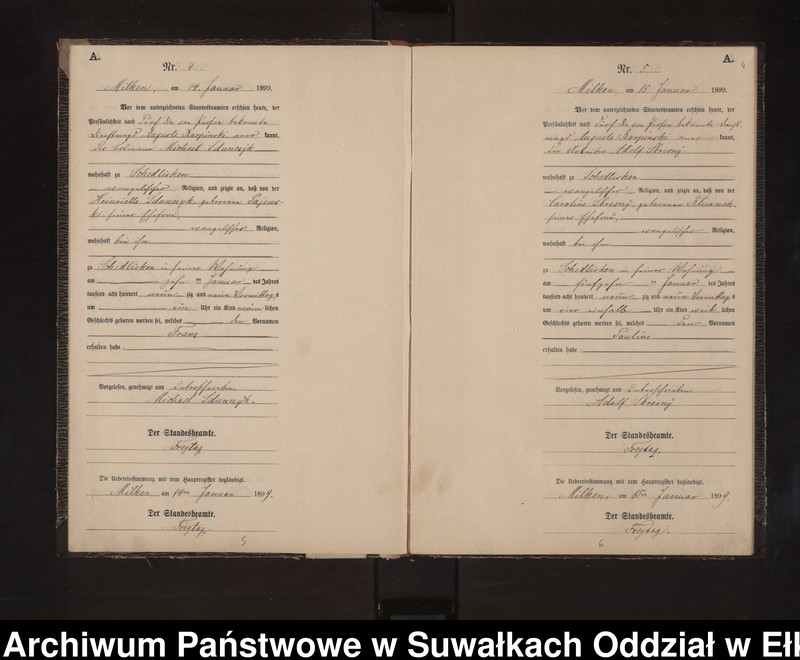 A.
Nr. 4.
Milken, am 14. Januar 1899.
Vor dem unterzeichneten Standesbeamten erschien heute, der
Persönlichkeit nach durch die von Person bekannte
Auguste Karpinski kannt,
der Michael Sdunczyk
wohnhaft zu Schedlisken
evangelischer Religion, und zeigte an, daß von der
Henriette Sdunczyk, geborenen
seiner Ehefrau,
evangelischer Religion,
wohnhaft bei ihm
zu Schedlisken in seiner Wohnung
am zehn ten Januar des Jahres
tausend acht hundert neunzig und neun Vormittags
um ein Uhr ein Kind männlichen
Geschlechts geboren worden sei, welches den Vornamen
Franz
erhalten habe.
Vorgelesen, genehmigt und unterschrieben
Michael Sdunczyk.
Der Standesbeamte.
Freytag
Die Uebereinstimmung mit dem Hauptregister beglaubigt.
Milken am 14ten Januar 1899.
Der Standesbeamte.
Freytag
5
A.
Nr. 5
Milken, am 15. Januar 1899.
Vor dem unterzeichneten Standesbeamten erschien heute, der
Persönlichkeit nach durch die von Person bekannte Dienst
magd Auguste Karpinski kannt,
der Adolf
wohnhaft zu Schedlisken
evangelischer Religion, und zeigte an, daß von der
Caroline geborenen
seiner Ehefrau,
evangelischer Religion,
wohnhaft bei ihm
zu Schedlisken in seiner Wohnung
am fünfzehn ten Januar des Jahres
tausend acht hundert neunzig und neun Vormittags
um vier einhalb Uhr ein Kind weiblichen
Geschlechts geboren worden sei, welches den Vornamen
Pauline
erhalten habe.
Vorgelesen, genehmigt und unterschrieben
Adolf
Der Standesbeamte.
Freytag.
Die Uebereinstimmung mit dem Hauptregister beglaubigt.
Milken, am 15ten Januar 1899.
Der Standesbeamte.
Freytag.
6
Archiwum Państwowe w Suwałkach Oddział w Ełk